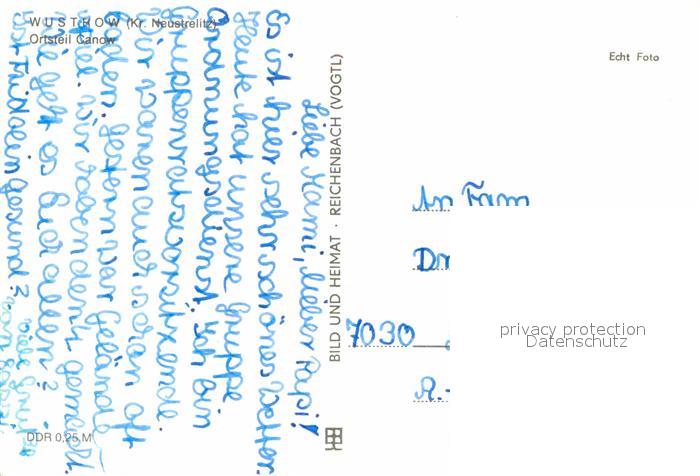 WUSTROW (Kr. Neustrelitz)
Ortsteil Canow
Echt Foto
Liebe Mami, lieber Papi!
Es ist hier sehr schönes Wetter.
Heute hat unsere Gruppe
Ordnungsdienst. Ich bin
Gruppenratsvorsitzende.
Wir waren auch schon oft
baden. Gestern war Gelände-
spiel. Wir haben den 1. gemacht.
Wie geht es Euch allen?
Ist Fridolin gesund?
viele Grüße
von
BILD UND HEIMAT · REICHENBACH (VOGTL)
An Fam
Dr
7030
R.-
privacy protection
Datenschutz
DDR 0,25 M